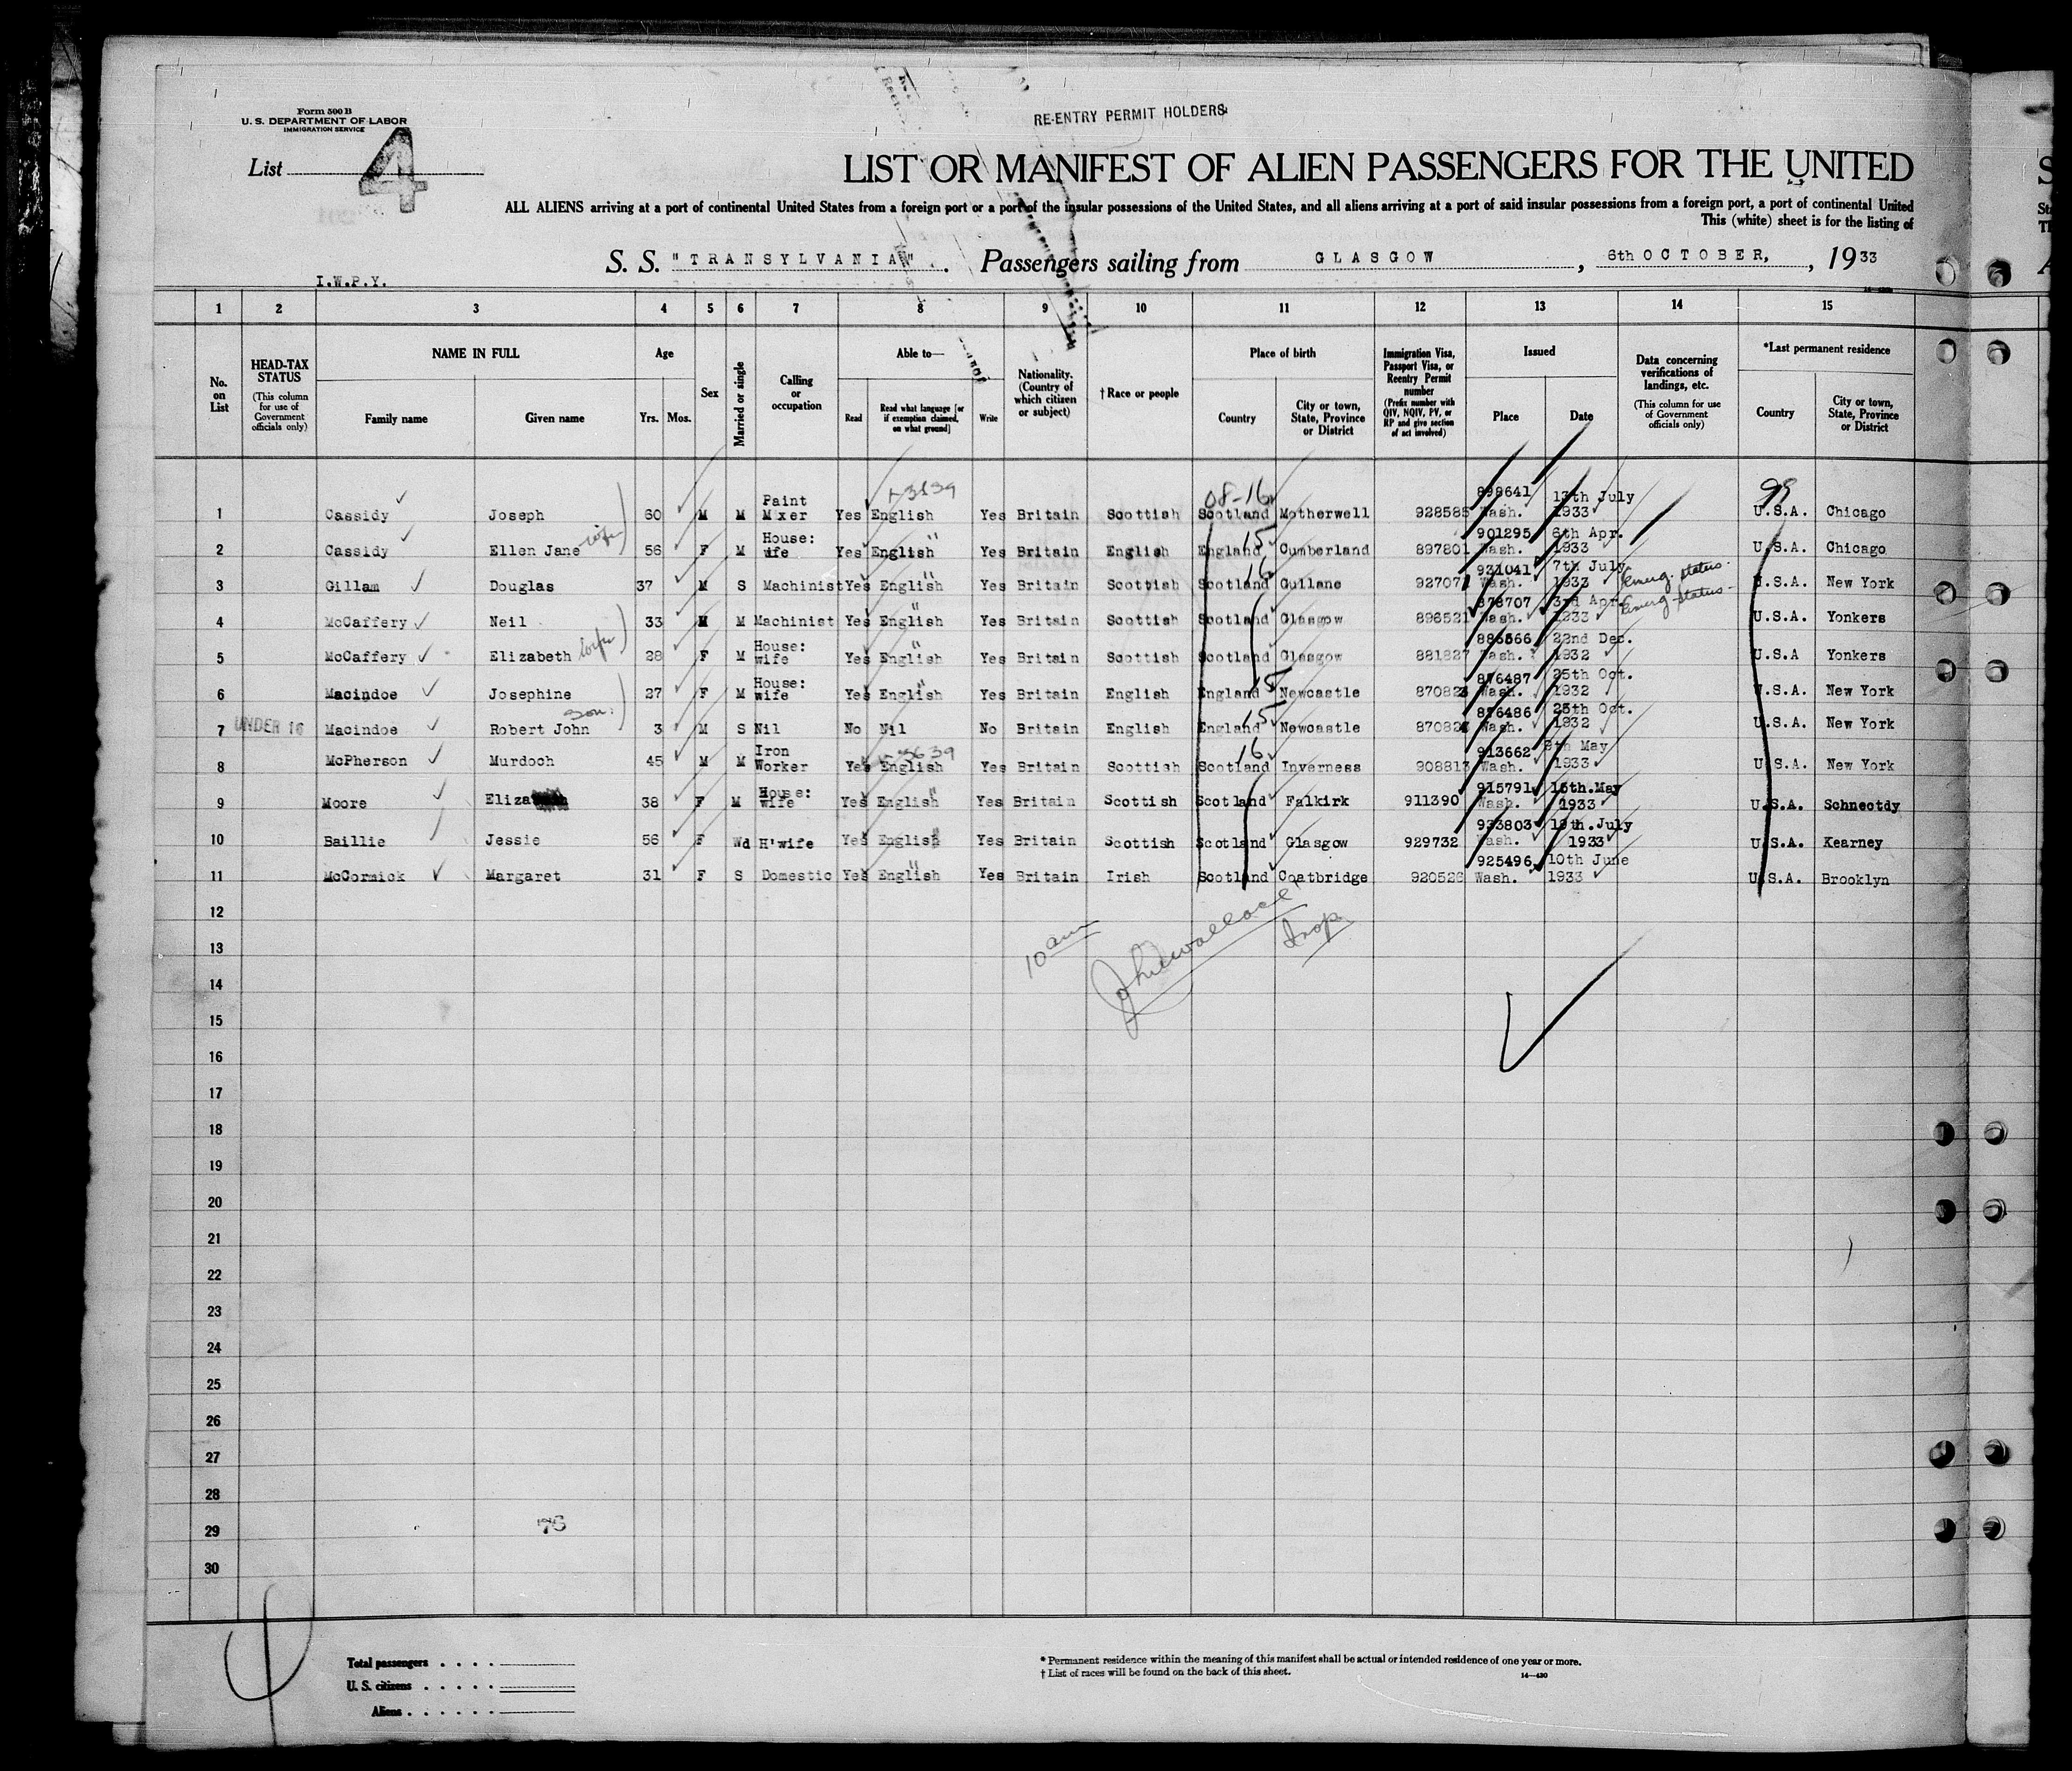 Form 500 B
U. S. DEPARTMENT OF LABOR
IMMIGRATION SERVICE
RE-ENTRY PERMIT HOLDERS
List 4
LIST OR MANIFEST OF ALIEN PASSENGERS FOR THE UNITED
ALL ALIENS arriving at a port of continental United States from a foreign port or a port of the insular possessions of the United States, and all aliens arriving at a port of said insular possessions from a foreign port, a port of continental United
This (white) sheet is for the listing of
S. S. "TRANSYLVANIA". Passengers sailing from GLASGOW, 6th OCTOBER, 1933
I.W.P.Y.
1 2 3 4 5 6 7 8 9 10 11 12 13 14 15
No. on List
HEAD-TAX STATUS (This column for use of Government officials only)
NAME IN FULL Family name Given name
Age Yrs. Mos.
Sex
Married or single
Calling or occupation
Able to— Read Read what language [or if exemption claimed, on what ground] Write
Nationality. (Country of which citizen or subject)
† Race or people
Place of birth Country City or town, State, Province or District
Immigration Visa, Passport Visa, or Reentry Permit number (Prefix number with QIV, NQIV, PV, or RP and give section of act involved)
Issued Place Date
Data concerning verifications of landings, etc. (This column for use of Government officials only)
*Last permanent residence Country City or town, State, Province or District
08-16 99
1 Cassidy Joseph 60 M M Paint Mixer Yes English Yes Britain Scottish Scotland Motherwell 928585 898641 Wash. 13th July 1933 U.S.A. Chicago
2 Cassidy Ellen Jane wife 56 F M House: wife Yes English " Yes Britain English England 15 Cumberland 897801 901295 Wash. 6th Apr. 1933 U.S.A. Chicago
3 Gillam Douglas 37 M S Machinist Yes English " Yes Britain Scottish Scotland 16 Gullane 927071 931041 Wash. 7th July 1933 Emerg. status. U.S.A. New York
4 McCaffery Neil 33 M M Machinist Yes English " Yes Britain Scottish Scotland Glasgow 896521 878707 Wash. 3rd Apr. 1933 Emerg status - U.S.A. Yonkers
5 McCaffery Elizabeth wife 28 F M House: wife Yes English " Yes Britain Scottish Scotland Glasgow 881827 886566 Wash. 22nd Dec. 1932 U.S.A Yonkers
6 Macindoe Josephine 27 F M House: wife Yes English " Yes Britain English England 15 Newcastle 876487 Wash. 25th Oct. 1932 U.S.A. New York
7 UNDER 16 Macindoe Robert John son: 3 M S Nil No Nil No Britain English England 15 Newcastle 876486 Wash. 25th Oct. 1932 U.S.A. New York
8 McPherson Murdoch 45 M M Iron Worker Yes English Yes Britain Scottish Scotland 16 Inverness 908813 913662 Wash. 9th May 1933 U.S.A. New York
9 Moore Eliza 38 F M House: wife Yes English " Yes Britain Scottish Scotland Falkirk 911390 915791 Wash. 15th.May 1933 U.S.A. Schnectdy
10 Baillie Jessie 56 F Wd H'wife Yes English " Yes Britain Scottish Scotland Glasgow 929732 933803 Wash. 19th.July 1933 U.S.A. Kearney
11 McCormick Margaret 31 F S Domestic Yes English " Yes Britain Irish Scotland Coatbridge 920526 925496 Wash. 10th June 1933 U.S.A. Brooklyn
12
13 10 am
14
15
16
17
18
19
20
21
22
23
24
25
26
27
28
29 76
30
Total passengers
U. S. citizens
Aliens
* Permanent residence within the meaning of this manifest shall be actual or intended residence of one year or more.
† List of races will be found on the back of this sheet.
14—430